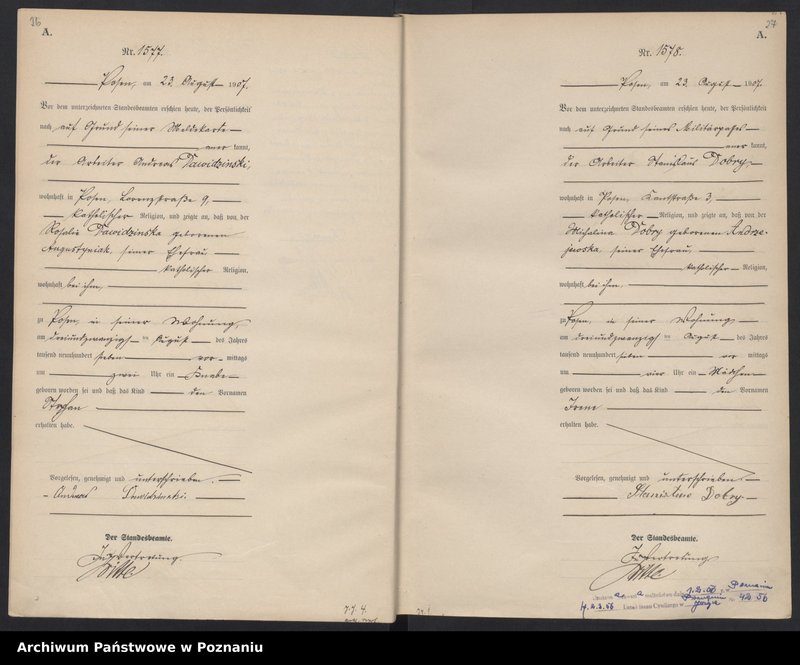 36
A.
Nr. 1577.
Posen, am 23. August 1907.
Vor dem unterzeichneten Standesbeamten erschien heute, der Persönlichkeit
nach auf Grund seiner Meldekarte
aner kannt,
der Arbeiter Andreas Dawidzinski,
wohnhaft in Posen, Lorenzstraße 9,
katholischer Religion, und zeigte an, daß von der
Rosalie Dawidzinska geborenen
Augustyniak, seiner Ehefrau
katholischer Religion,
wohnhaft bei ihm,
zu Posen, in seiner Wohnung,
am dreiundzwanzigsten August des Jahres
tausend neunhundert sieben vor mittags
um zwei Uhr ein Knabe
geboren worden sei und daß das Kind den Vornamen
Stephan
erhalten habe.
Vorgelesen, genehmigt und unterschrieben.
Andreas Dawidzinski.
Der Standesbeamte.
In Vertretung.
Witte
37
A.
Nr. 1578.
Posen, am 23. August 1907.
Vor dem unterzeichneten Standesbeamten erschien heute, der Persönlichkeit
nach auf Grund seines Militärpasses
aner kannt,
der Arbeiter Stanislaus Dobry,
wohnhaft in Posen, Kantstraße 3,
katholischer Religion, und zeigte an, daß von der
Michalina Dobry geborenen Andrze-
jewska, seiner Ehefrau,
katholischer Religion,
wohnhaft bei ihm,
zu Posen, in seiner Wohnung
am dreiundzwanzigsten August des Jahres
tausend neunhundert sieben vor mittags
um vier Uhr ein Mädchen
geboren worden sei und daß das Kind den Vornamen
Irene
erhalten habe.
Vorgelesen, genehmigt und unterschrieben
Stanislaus Dobry
Der Standesbeamte.
In Vertretung
Witte
Urząd Stanu Cywilnego w
Archiwum Państwowe w Poznaniu